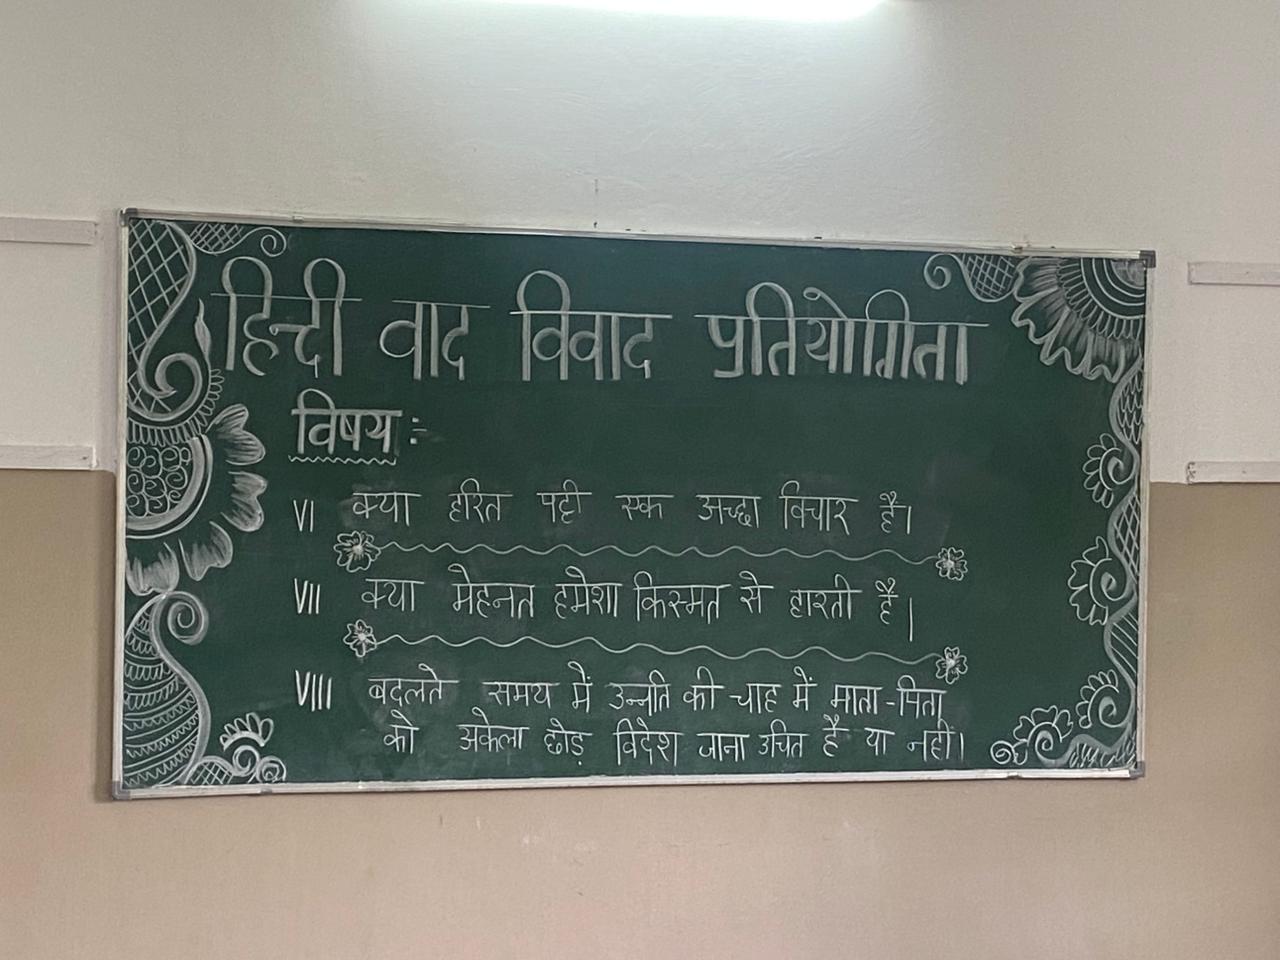 हिन्दी वाद विवाद प्रतियोगिता
विषय :-
VI क्या हरित पट्टी एक अच्छा विचार है।
VII क्या मेहनत हमेशा किस्मत से हारती है।
VIII बदलते समय में उन्नति की चाह में माता-पिता
को अकेला छोड़ विदेश जाना उचित है या नहीं।